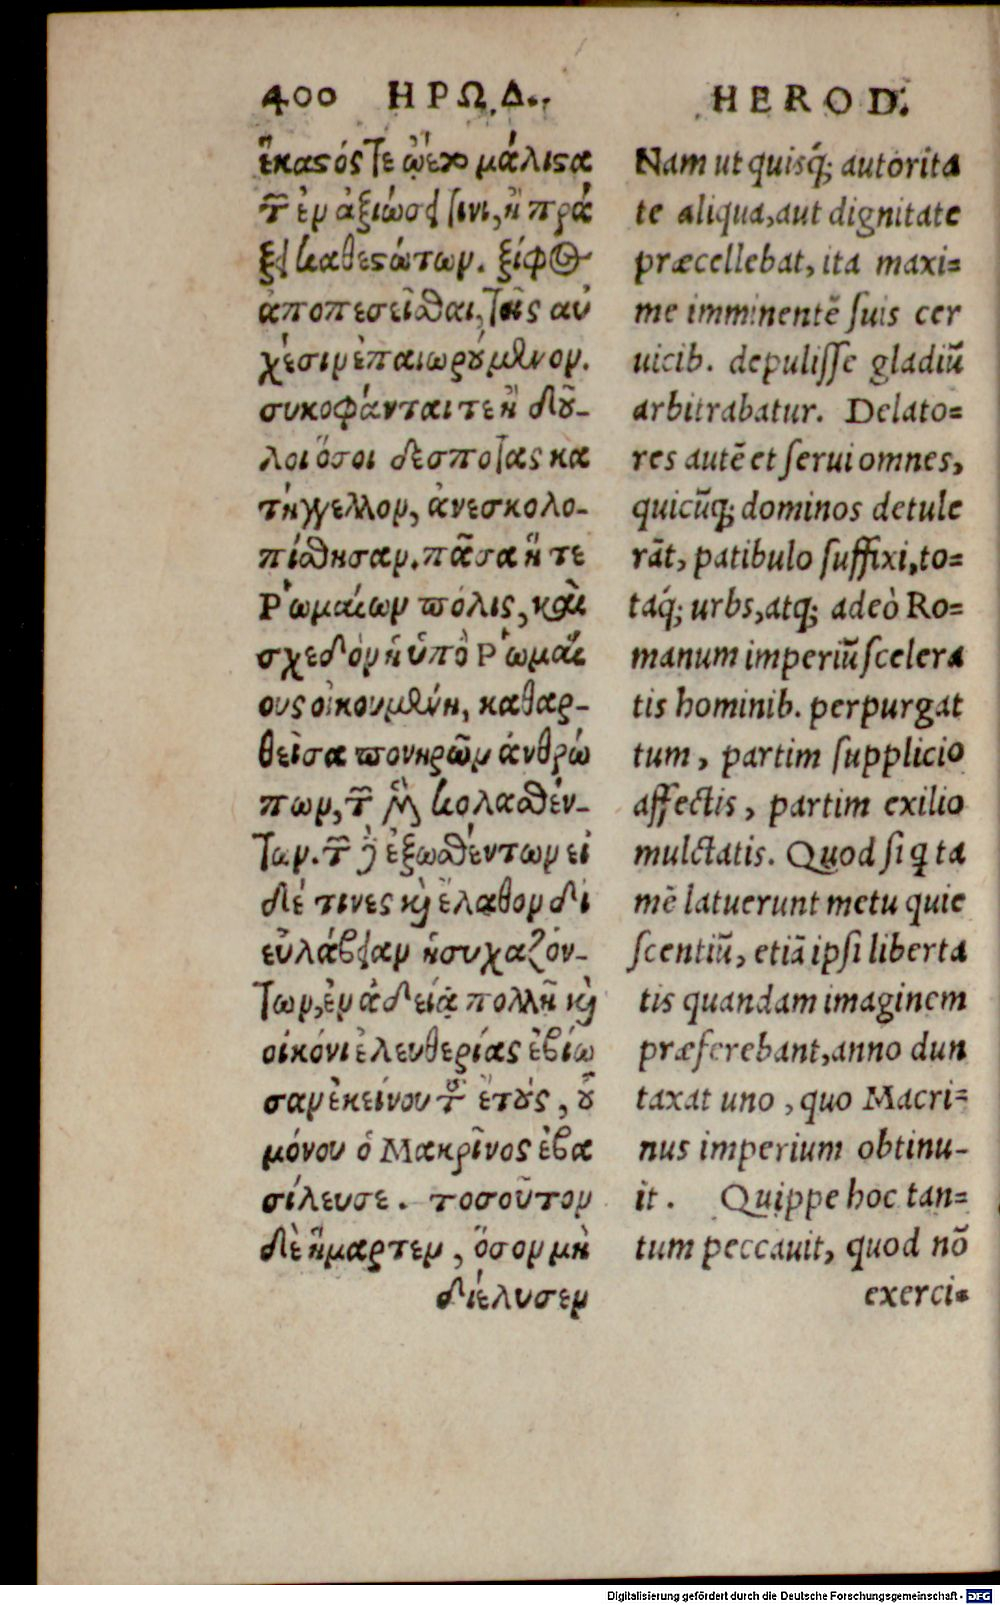 400 ΗΡΩΔ.
ἕκαστός τε ᾤετο μάλιστα
τῶν ἐν ἀξιώσει τινι, ἢ πρά
ξει καθεστώτων. ξίφος
ἀποπεσεῖσθαι, τοῖς αὐ
χέσιν ἐπαιωρούμενον.
συκοφάνται τε ἢ δοῦ-
λοι ὅσοι δεσπότας κα
τήγγελλον, ἀνεσκολο-
πίσθησαν. πᾶσα ἥ τε
Ῥωμαίων πόλις, καὶ
σχεδὸν ἡ ὑπὸ Ῥωμαί
ους οἰκουμένη, καθαρ-
θεῖσα πονηρῶν ἀνθρώ
πων, τῶν μὲν κολασθέν-
των. τῶν δὲ ἐξωσθέντων εἰ
δέ τινες καὶ ἔλαθον δι
εὐλάβειαν ἡσυχαζόν-
των, ἐν ἀδείᾳ πολλῇ καὶ
οἰκόνι ἐλευθερίας ἐβίω
σαν ἐκείνου τοῦ ἔτους, οὗ
μόνου ὁ Μακρῖνος ἐβα
σίλευσε. τοσοῦτον
δὲ ἥμαρτεν, ὅσον μὴ
διέλυσεν
HEROD.
Nam ut quisq́; autorita
te aliqua, aut dignitate
præcellebat, ita maxi=
me imminentẽ suis cer
uicib. depulisse gladiũ
arbitrabatur. Delato=
res autẽ et serui omnes,
quicũq; dominos detule
rãt, patibulo suffixi, to=
taq́; urbs, atq; adeò Ro=
manum imperiũ scelera
tis hominib. perpurgat
tum, partim supplicio
affectis, partim exilio
mulctatis. Quod si q ta
mẽ latuerunt metu quie
scentiũ, etiã ipsi liberta
tis quandam imaginem
præferebant, anno dun
taxat uno, quo Macri=
nus imperium obtinu-
it. Quippe hoc tan=
tum peccauit, quod nõ
exerci=
Digitalisierung gefördert durch die Deutsche Forschungsgemeinschaft - DFG